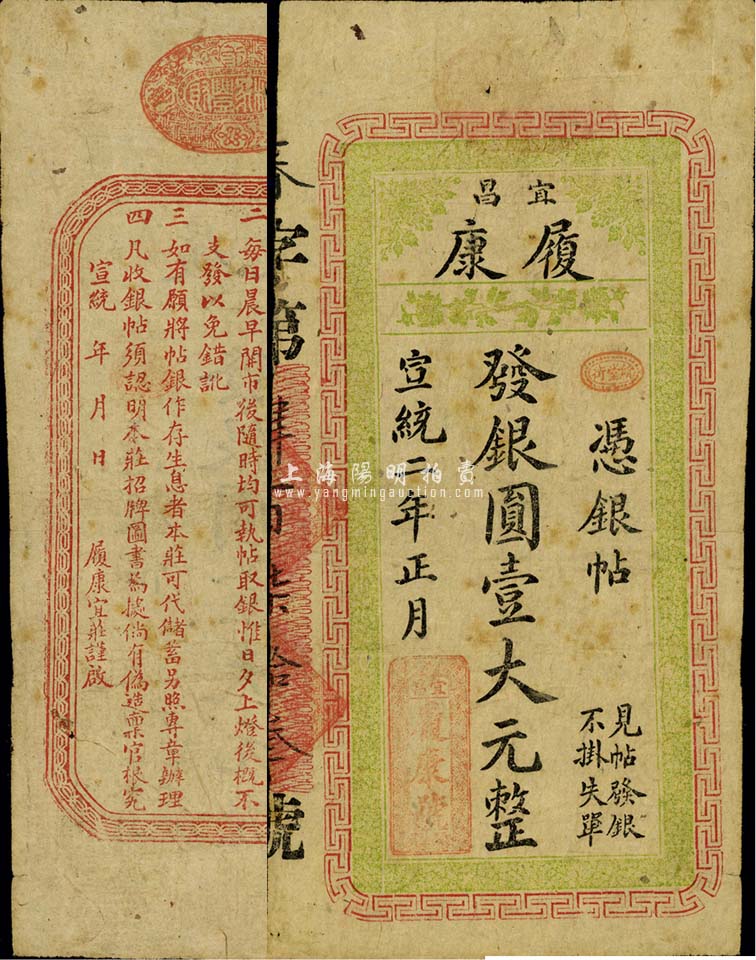 宜昌
履康
憑銀帖
見帖發銀
不掛失單
發銀圓壹大元整
宣統二年正月
宜昌
履康號
字第肆百柒拾叁號
二 每日晨早開市後隨時均可執帖取銀惟日夕上燈後概不
支發以免錯訛
三 如有願將帖銀作存生息者本莊可代儲蓄另照專章辦理
四 凡收銀帖須認明本莊招牌圖書為據倘有偽造稟官根究
宣統 年 月 日
履康宜莊謹啟
上海陽明拍賣
www.yangmingauction.com